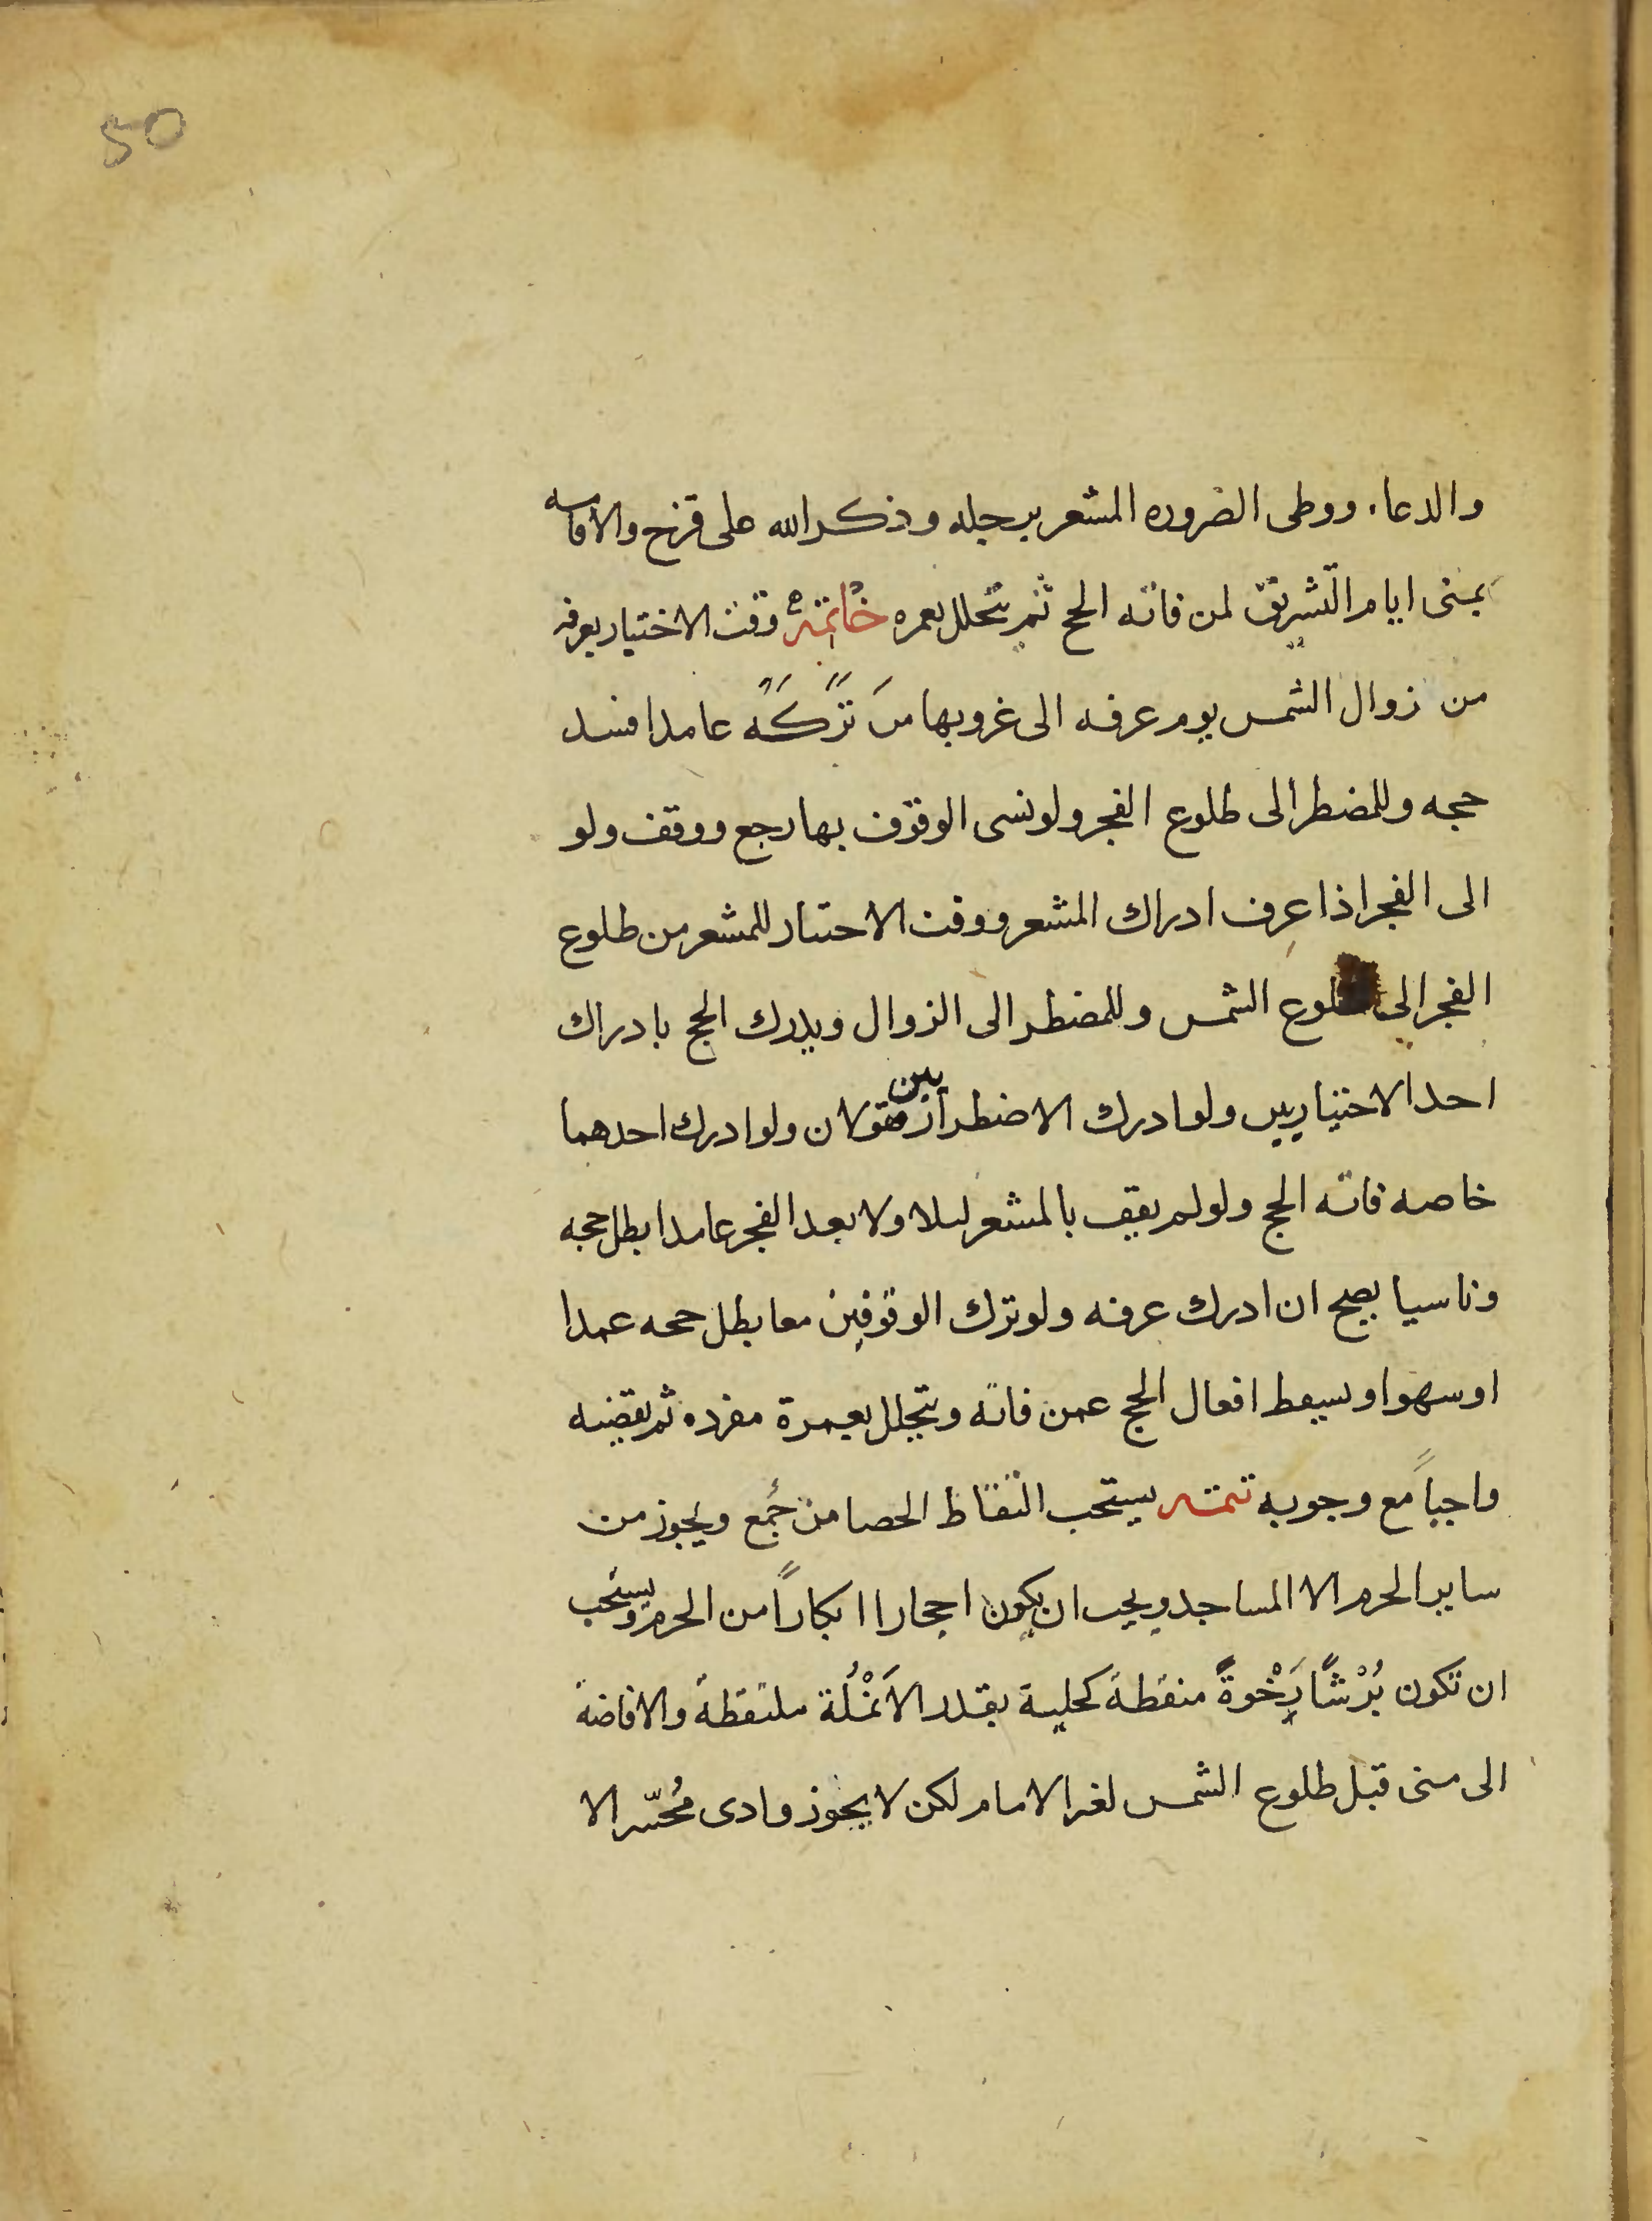 50
والدعاء ووطى الضروره المشعر برجله وذكر الله على قزح والاقامه
بمنى ايام التشريق لمن فاته الحج ثم يتحلل بعمره خاتمة وقت الاختيار بعرفه
من زوال الشمس يوم عرفه الى غروبها من تركه عامدا فسد
حجه وللمضطر الى طلوع الفجر ولو نسى الوقوف بها رجع ووقف ولو
الى الفجر اذا عرف ادراك المشعر ووقت الاختيار للمشعر من طلوع
الفجر الى طلوع الشمس وللمضطر الى الزوال ويدرك الحج بادراك
احد الاختياريين ولو ادرك الاضطراريين فقولان ولو ادرك احدهما
خاصه فاته الحج ولو لم يقف بالمشعر ليلا ولا بعد الفجر عامدا بطل حجه
وناسيا يصح ان ادرك عرفه ولو ترك الوقوفين معا بطل حجه عمدا
او سهوا ويسقط افعال الحج عمن فاته ويتحلل بعمرة مفرده ثم يقضيه
واجباً مع وجوبه تتمه يستحب التقاط الحصا من جُمع ويجوز من
ساير الحرم الا المساجد ويجب ان يكون احجارا ابكاراً من الحرم ويستحب
ان تكون بُرْشًا رَِخْوةً منقطة كحلية بقدر الاَنمْلُة ملتقطة والافاضة
الى منى قبل طلوع الشمس لغير الامام لكن لا يجوز وادى مُحسّر الا